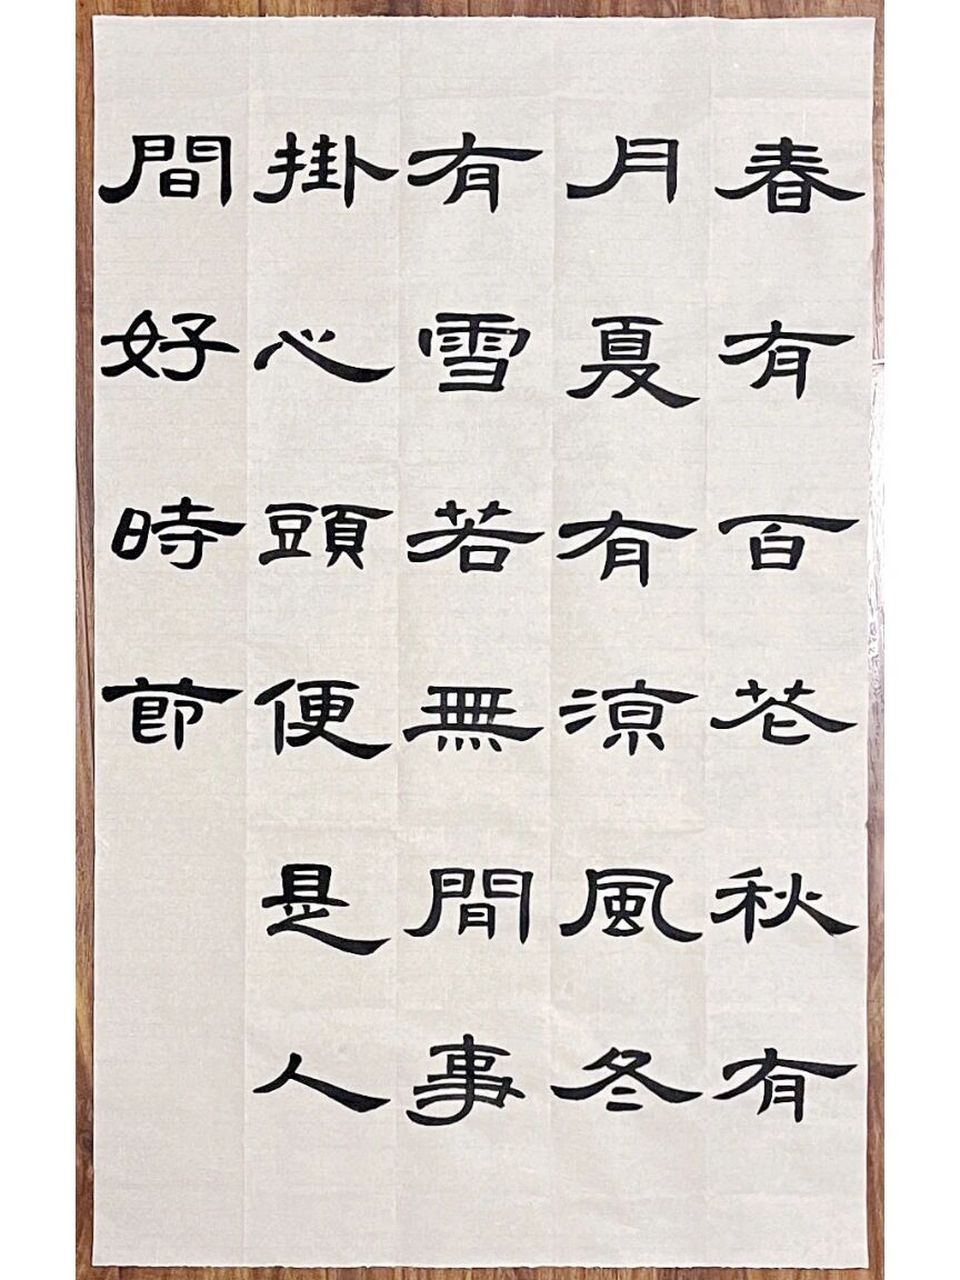 春有百花秋有
月夏有涼風冬
有雪若無間事
掛心頭便是人
間好時節